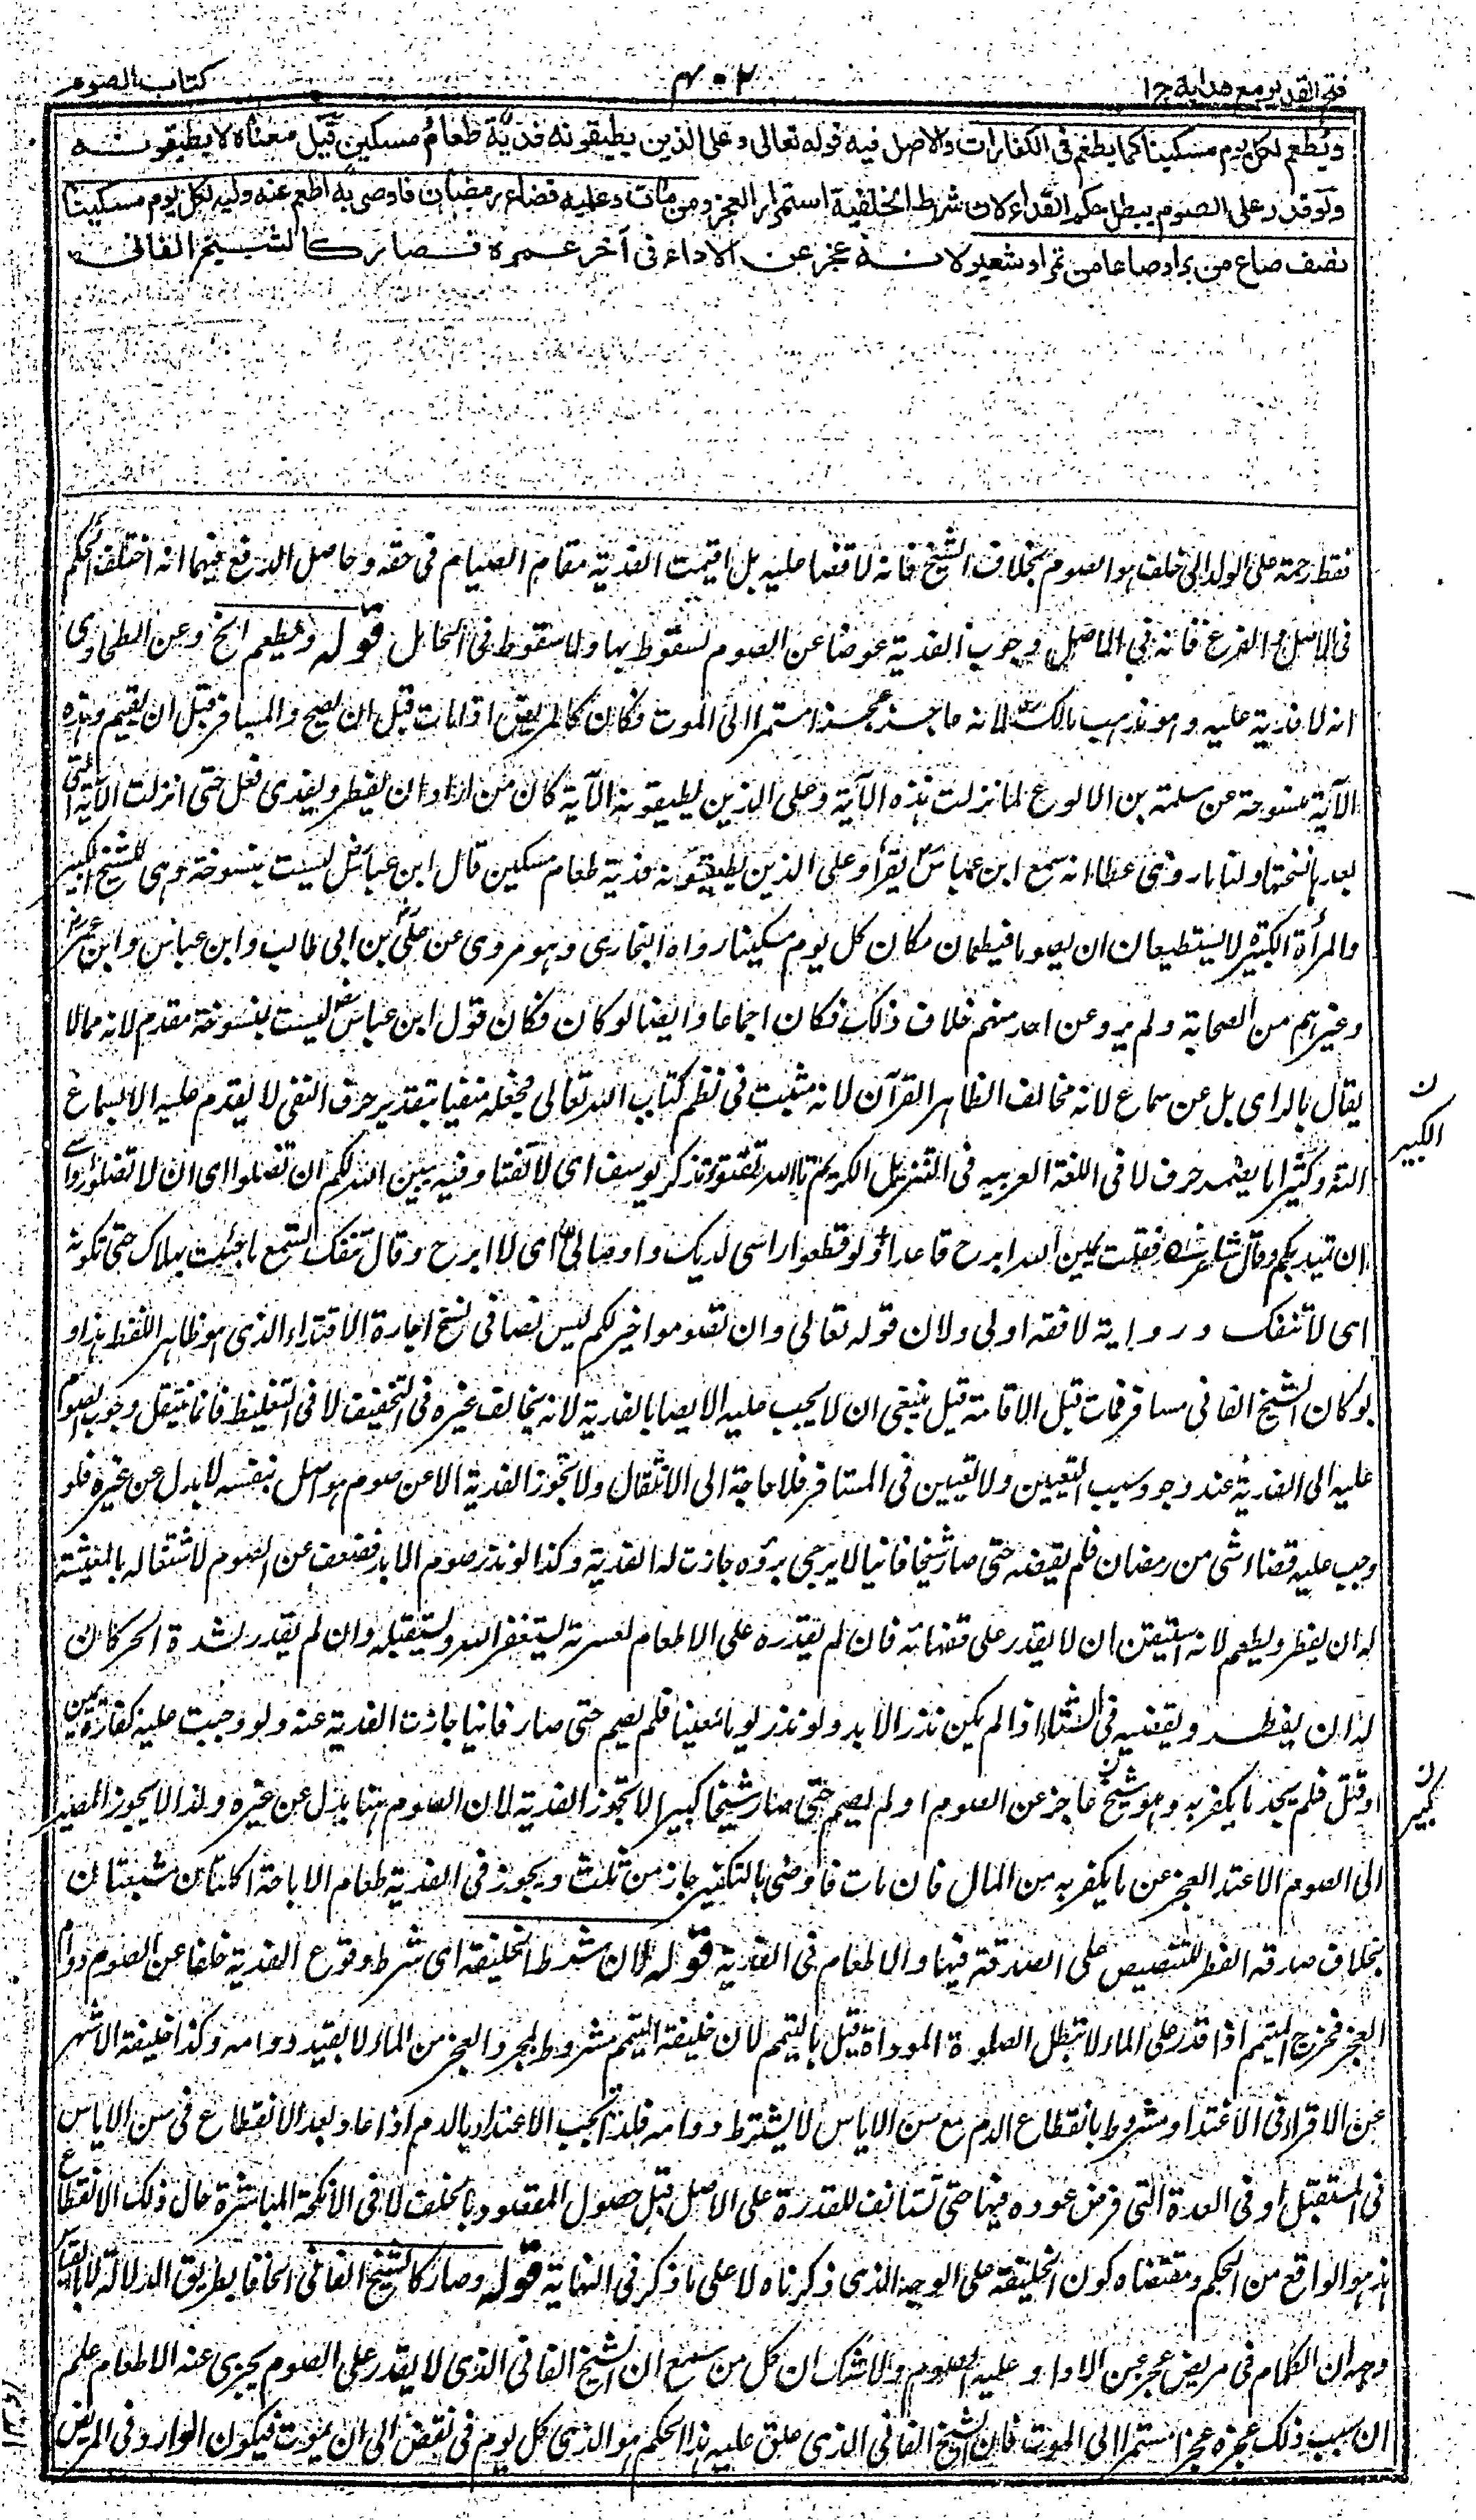 فتح القدير مع هداية ج ١
٤٠٢
كتاب الصوم
ويطعم لكل يوم مسكينا كما يطعم فى الكفارات والاصل فيه قوله تعالى وعلى الذين يطيقونه فدية طعام مسكين قيل معناه لا يطيقونه
ولو قدر على الصوم يبطل حكم الفداء لان شرط الخلفية استمرار العجز ومن مات وعليه قضاء رمضان فاوصى به اطعم عنه وليه لكل يوم مسكينا
نصف صاع من بر او صاعا من تمر او شعير لانه عجز عن الاداء فى آخر عمره فصار كالشيخ الفانى
فقط رحمة على الولد الى خلف هو الصوم بخلاف الشيخ فانه لا قضا عليه بل اقيمت الفدية مقام الصيام فى حقه وحاصل الدفع فيهما انه اختلف الحكم
فى الاصل والفرع فانه فى الاصل وجوب الفدية عوضا عن الصوم لسقوط بها ولا سقوط فى الحامل قوله ويطعم الخ وعن الطحاوى
انه لا فدية عليه وهو مذهب مالك لانه عاجز عجزا استمر الى الموت فكان كالمريض اذا مات قبل ان يصح والمسافر قبل ان يقيم وهذه
الآية منسوخة عن سلمة بن الاكوع لما نزلت هذه الآية وعلى الذين يطيقونه الآية كان من اراد ان يفطر ويفدى فعل حتى انزلت الآية التى
بعدها نسختها ولنا ما روى عطاء انه سمع ابن عباس يقرأ وعلى الذين يطيقونه فدية طعام مسكين قال ابن عباس ليست بمنسوخة وهى للشيخ الكبير
والمرأة الكبيرة لا يستطيعان ان يصوما فيطعمان مكان كل يوم مسكينا رواه البخارى وهو مروى عن على بن ابى طالب وابن عباس وابن عمر
وغيرهم من الصحابة ولم يرو عن احد منهم خلاف ذلك فكان اجماعا وايضا لو كان فكان قول ابن عباس ليست بمنسوخة مقدم لانه مما لا
يقال بالراى بل عن سماع لانه مخالف الظاهر القرآن لانه مثبت فى نظم كتاب الله تعالى فجعله منفيا بتقدير حرف النفى لا يقدم عليه الا بسماع
البتة وكثيرا ما يضمر حرف لا فى اللغة العربيه فى التنزيل الكريم تالله تفتؤ تذكر يوسف اى لا تفتأ وفيه يبين الله لكم ان تضلوا اى ان لا تضلوا رواسى
ان تميد بكم وقال شاعر فقلت يمين الله ابرح قاعدا ولو قطعوا راسى لديك واوصالى اى لا ابرح وقال تنفك تسمع ما حييت بهالك حتى تكونه
اى لا تنفك ورواية لا فقه اولى ولان قوله تعالى وان تصوموا خير لكم ليس نصا فى نسخ اجازة الافتداء الذى هو ظاهر اللفظ هذا و
لو كان الشيخ الفانى مسافر فمات قبل الاقامة قيل ينبغى ان لا يجب عليه الايصا بالفدية لانه يخالف غيره فى التخفيف لا فى التغليظ فانما ينتقل وجوب الصوم
عليه الى الفدية عند وجود سبب التعيين ولا تعيين فى المسافر فلا حاجة الى الانتقال ولا تجوز الفدية الا عن صوم هو اصل بنفسه لا بدل عن غيره فلو
وجب عليه قضاء شى من رمضان فلم يقضه حتى صار شيخا فانيا لا يرجى برؤه جازت له الفدية وكذا لو نذر صوم الابد فضعف عن الصوم لاشتغاله بالمعيشة
له ان يفطر ويطعم لانه استيقن ان لا يقدر على قضائه فان لم يقدر على الاطعام لعسرته يستغفر الله ويستقيله وان لم يقدر لشدة الحر كان
له ان يفطر ويقضيه فى الشتاء اذا لم يكن نذر الابد ولو نذر يوما معينا فلم يصم حتى صار فانيا جازت الفدية عنه ولو وجبت عليه كفارة يمين
او قتل فلم يجد ما يكفر به وهو شيخ عاجز عن الصوم او لم يصم حتى صار شيخا كبيرا لا تجوز الفدية لان الصوم هنا بدل عن غيره ولذا لا يجوز المصير
الى الصوم الا عند العجز عن ما يكفر به من المال فان مات فاوصى بالتكفير جاز من ثلثه ويجوز فى الفدية طعام الاباحة اكلتان مشبعتان
بخلاف صدقة الفطر للتنصيص على الصدقة فيها والاطعام فى الفدية قوله لان شرط الخليفة اى شرط وقوع الفدية خلفا عن الصوم دوام
العجز فخرج المتيمم اذا قدر على الماء لا تبطل الصلوة المؤداة قبل بالتيمم لان خليفة التيمم مشروط بمجرد العجز من الماء لا بقيد دوامه وكذا خليفة الاشهر
عن الاقراء فى الاعتداد مشروط بانقطاع الدم مع سن الاياس لا يشترط دوامه فلذا يجب الاعتداد بالدم اذا عاد بعد الانقطاع فى سن الاياس
فى المستقبل او فى العدة التى فرض عوده فيها حتى تستانف للقدرة على الاصل قبل حصول المقصود بالخلف لا فى الانكحة المباشرة حال ذلك الانقطاع
هذا هو الواقع من الحكم ومقتضاه كون الخليفة على الوجه الذى ذكرناه لا على ما ذكر فى النهاية قوله وصار كالشيخ الفانى الحاقا بطريق الدلالة لا بالقياس
وجهه ان الكلام فى مريض عجز عن الاداء وعليه الصوم ولا شك ان كل من سمع ان الشيخ الفانى الذى لا يقدر على الصوم يجزى عنه الاطعام علم
ان سبب ذلك عجزه عجزا مستمرا الى الموت فان الشيخ الفانى الذى علق عليه هذا الحكم هو الذى كل يوم فى نقص الى ان يموت فيكون الوارد فى المريض
ن
الكبير
ن
كبير